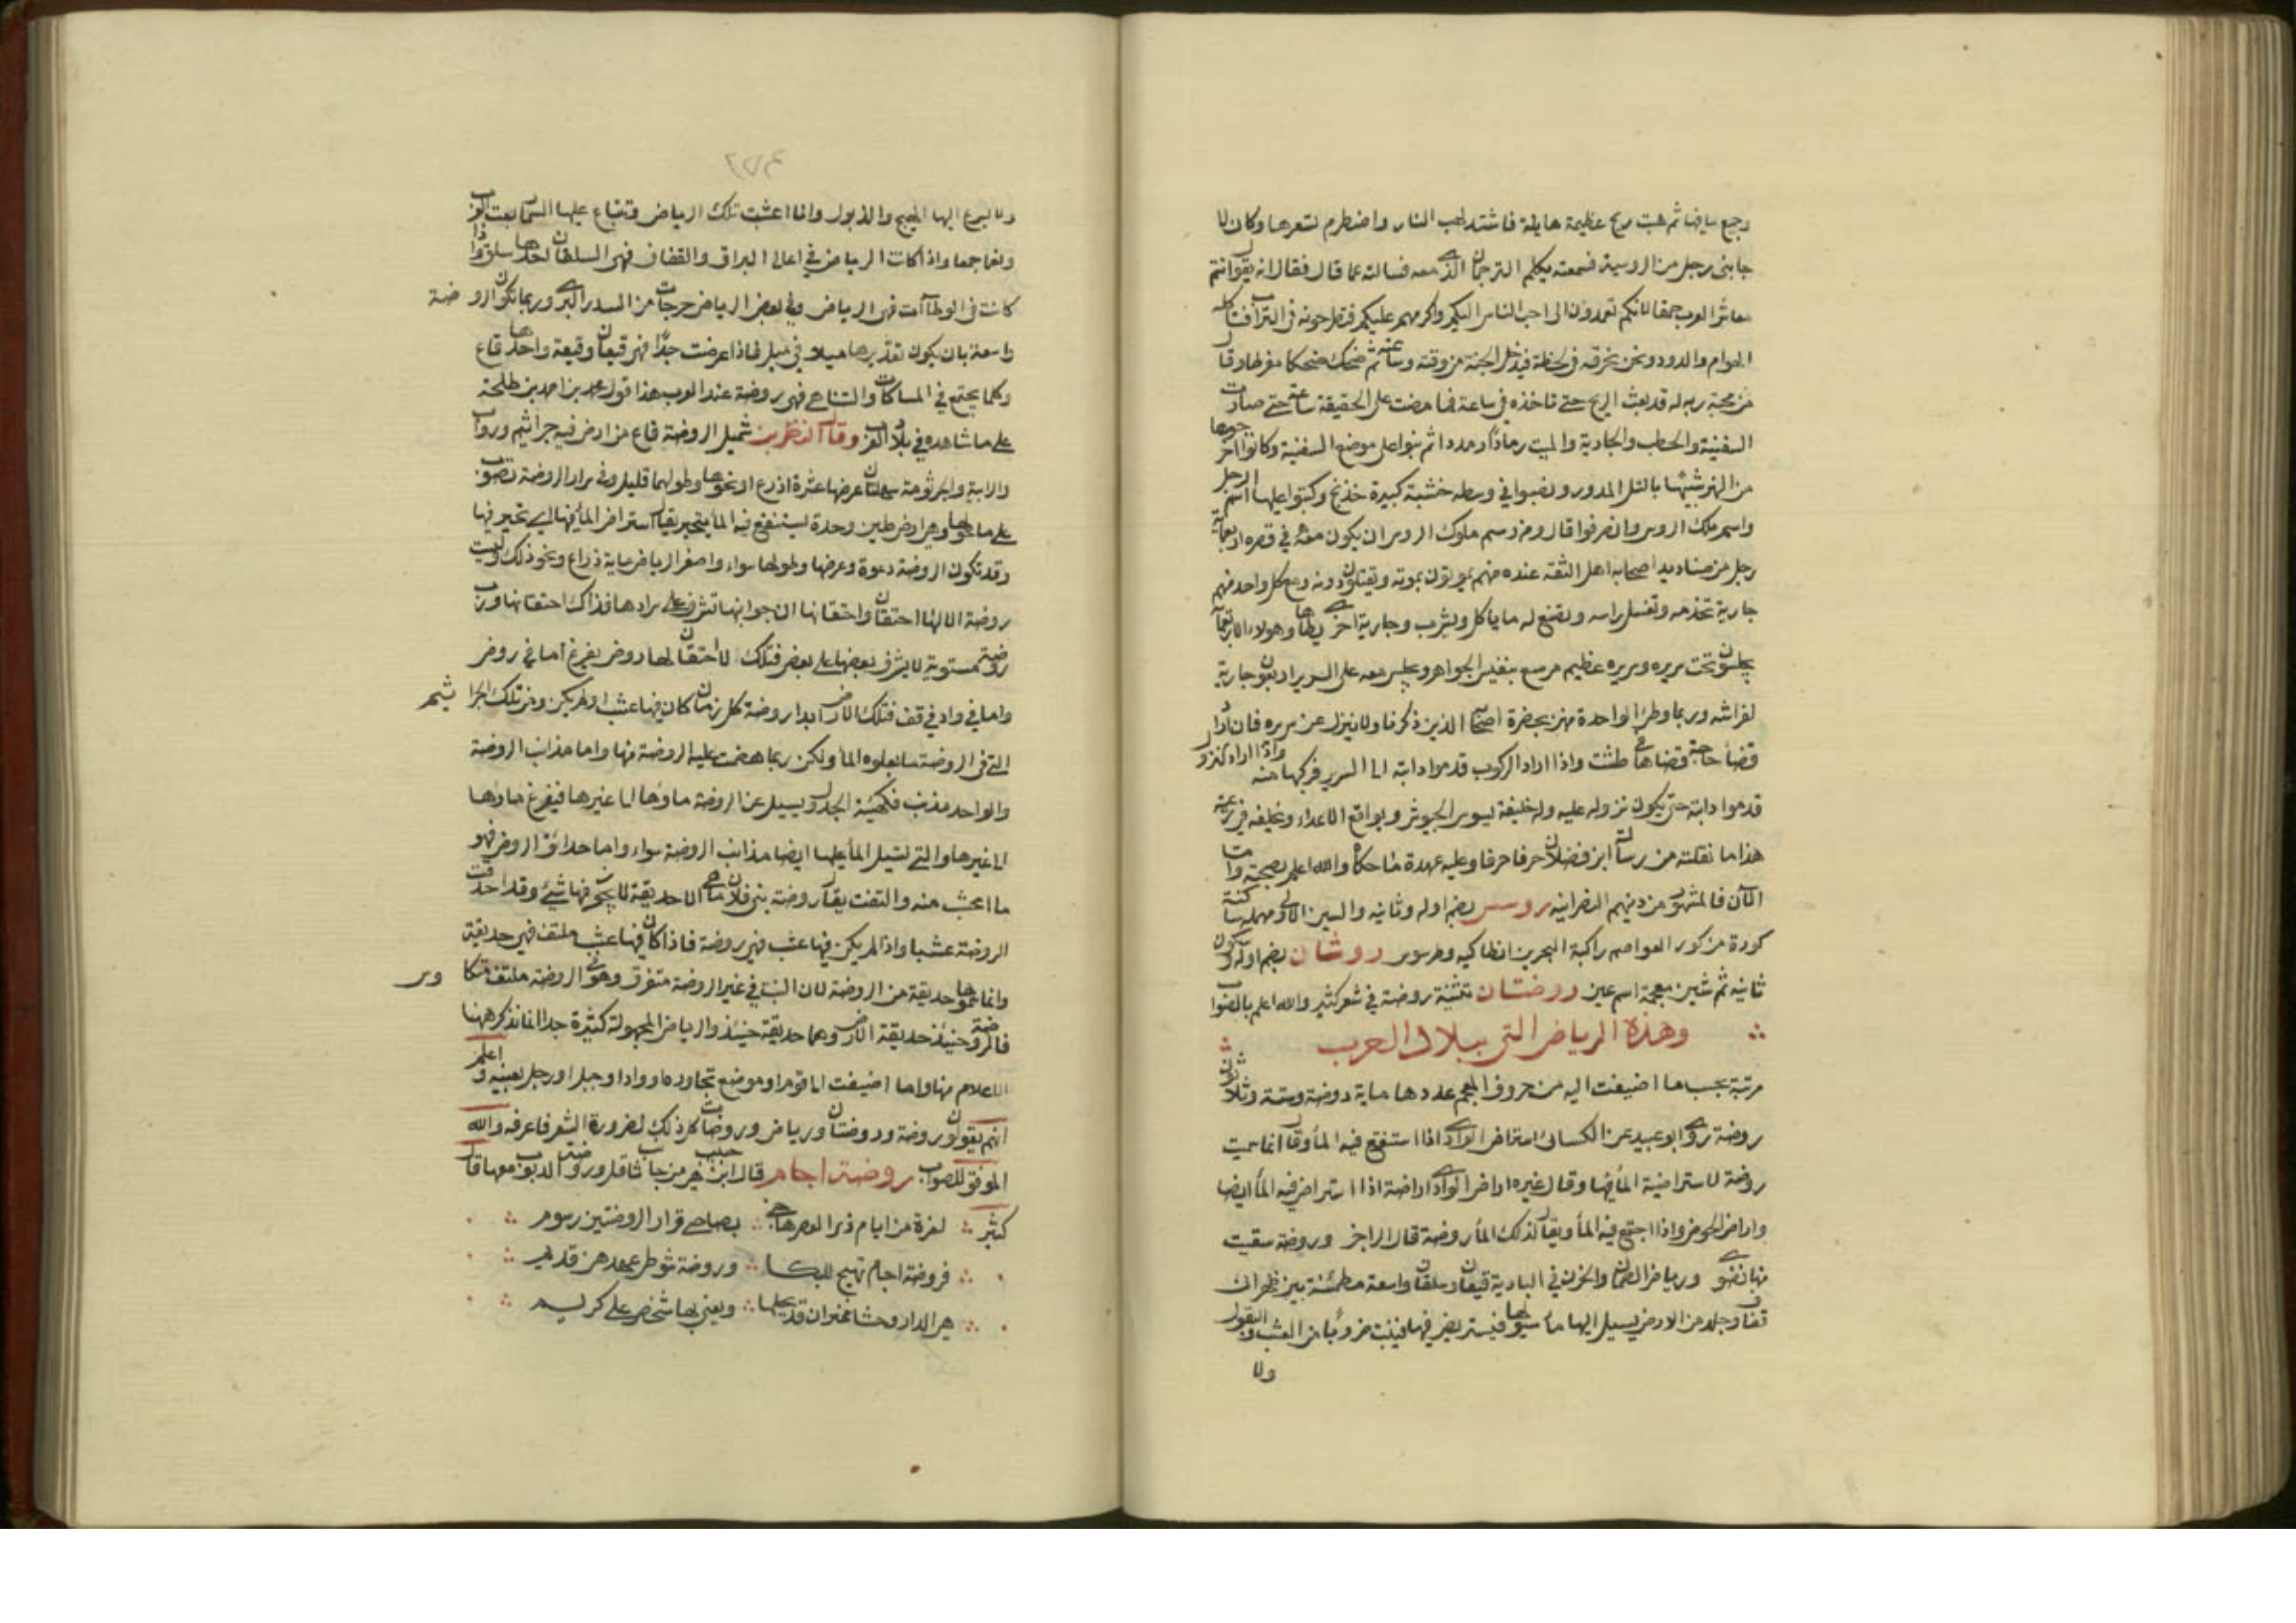 وجميع ما فيها ثم هبت ريح عظيمة هايلة فاشتد لهب النار واضطرم تسعرها وكان لا
جابنى رجل من الروسية فسمعته يكلم الترجمان الذى معه فسالته عما قال فقال انه يقول انتم
معاشر العرب حمقا لانكم تعمدون الى احب الناس اليكم واكرمهم عليكم فتطرحونه فى التراب فتاكله
الهوام والدود ونحن نحرقه فى لحظة فيدخل الجنة من وقته وساعته ثم ضحك ضحكا مفرطا وقال
من محبة ربه له قد بعث الريح حتى تاخذه فى ساعة فما مضت على الحقيقة ساعة حتى صارت
السفينة والحطب والجارية والميت رمادا رمددا ثم بنوا على موضع السفينة وكانوا اخرجوها
من النهر شبيها بالتل المدور ونصبوا فى وسطه خشبة كبيرة خذنج وكتبوا عليها اسم الرجل
واسم ملك الروس وانصرفوا قال ومن رسم ملوك الروس ان يكون معه فى قصره اربعماية
رجل من صناديد اصحابه اهل الثقة عنده منهم يموتون بموته ويقتلون دونه ومع كل واحد منهم
جارية تخدمه وتغسل راسه وتصنع له ما ياكل ويشرب وجارية اخرى يطاها وهولاء الاربعماية
يجلسون تحت سريره وسريره عظيم مرصع بنفيس الجواهر ويجلس معه على السرير اربعون جارية
لفراشه وربما وطئ الواحدة منهن بحضرة اصحابه الذين ذكرنا ولا ينزل عن سريره فان اراد
قضا حاجة قضاها فى طشت واذا اراد الركوب قدموا دابته الى السرير فركبها منه واذا اراد النزول
قدموا دابته حتى يكون نزوله عليه وله خليفة يسوس الجيوش ويواقع الاعداء ويخلفه فى رعيته
هذا ما نقلته من رسالة ابن فضلان حرفا حرفا وعليه عهدة ما حكاه والله اعلم بصحته واما
الآن فالمشهور من دينهم النصرانية روسس بضم اوله وثانيه والسين الاولى مهملة ساكنة
كورة من كور العواصم راكبة البحر بين انطاكيه وطرسوس روشان بضم اوله وسكون
ثانيه ثم شين معجمة اسم عين روضتان تثنية روضة فى شعر كثير والله اعلم بالصواب
وهذه الرياض التى ببلاد العرب
مرتبة بحسب ما اضيفت اليه من حروف المعجم عددها ماية روضة وستة وثلاثون
روضة روى ابو عبيد عن الكسائى استراض الوادى اذا استنقع فيه الما وقال انما سميت
روضة لاستراضة الما فيها وقال غيره اراض الوادى اراضة اذا استراض فيه الما ايضا
واراض الحوض اذا اجتمع فيه الما ويقال لذلك الما روضة قال الراجز وروضة سقيت
منها نضوى ورياض الصمان والحزن فى البادية قيعان وسلقان واسعة مطمئنة بين ظهرانى
قفاف وجلد من الارض يسيل اليها ما سيولها فيستريض فيها فينبت ضروبا من العشب والبقول
ولا
ولا يسرع اليها الهيج والذبول واذا اعشبت تلك الرياض وتتابع عليها السمى رتعت العرب
ونعمها جمعا واذا كانت الرياض فى اعالى البراق والقفاف فهى السلقان احدها سلق واذا
كانت فى الوطاآت فهى الرياض وفى بعض الرياض حرجات من السدر البرى وربما تكون الروضة
واسعة بان يكون تقديرها ميلا فى ميل فاذا عرضت جدا فهى قيعان وقيعة واحدها قاع
وكلما يجتمع فى المساكات والتناهى فهى روضة عند العرب هذا قول محمد بن احمد بن طلحة
على ما شاهده فى بلاد العرب وقال النضر بن شميل الروضة قاع من ارض فيه جراثيم ورواب
والرابية والجرثومة سهلتان عرضها عشرة اذرع او نحوها وطولهما قليل وفى سرار الروضة تصوب
على ما حولها وهى ارض طين وحدة يستنقع فيه الما يتحير يقال استراض الما فيها اى تحير فيها
وقد تكون الروضة دعوة وعرضها وطولها سواء واصغر الرياض ماية ذراع ونحو ذلك وليست
روضة الا لها احتقان واحتقانها ان جوانبها تشرف على سرارها فذاك احتقانها ورب
روضة مستوية لا يشرف بعضها على بعض فتلك لا احتقان لها روض يفرغ اما فى روض
واما فى واد فى قف فتلك الارض ابدا روضة كل زمان كان فيها عشب او لم يكن ومن تلك الجراثيم
التى فى الروضة ما يعلوه الما ولكن ربما هضمت عليه الروضة منها واما مذانب الروضة
والواحد مذنب فكهيئة الجدول يسيل عن الروضة ماوها الى غيرها فيفرغ ماوها
الى غيرها والتى تسيل الما عليها ايضا مذانب الروضة سواء واما حدائق الروض فهو
ما اعشب منه والتفت يقال روضة بنى فلان ما هى الا حديقة لا يجوز فيها شئ وقد احدقت
الروضة عشبا واذا لم يكن فيها عشب فهى روضة فاذا كان فيها عشب ملتف فهى حديقة
وانما سموها حديقة من الروضة لان النبات فى غير الروضة متفرق وهو فى الروضة ملتف متكاوس
فالروضة حينئذ حديقة الارض وهما حديقة حينئذ والرياض المجهولة كثيرة جدا انما نذكر ههنا
الاعلام منها وما اضيفت الى قوم او موضع تجاوره او واد او جبل او رجل بعينه واعلم
انهم يقولون روضة وروضتان ورياض وروضات كل ذلك لضرورة الشعر فاعرفه والله
الموفق للصواب روضة اجام قال ابن حبيب هى من جانب ثاقل وروضة الدبوب معها قال
كثير لعزة من ايام ذى الغصن هاجنى بضاحى قرار الروضتين رسوم
فروضة اجام تهيج لى البكا وروضة شوطى عهدهن قديم
هى الدار وحشا غير ان قد يحلها ويغنى بها شخص على كريم